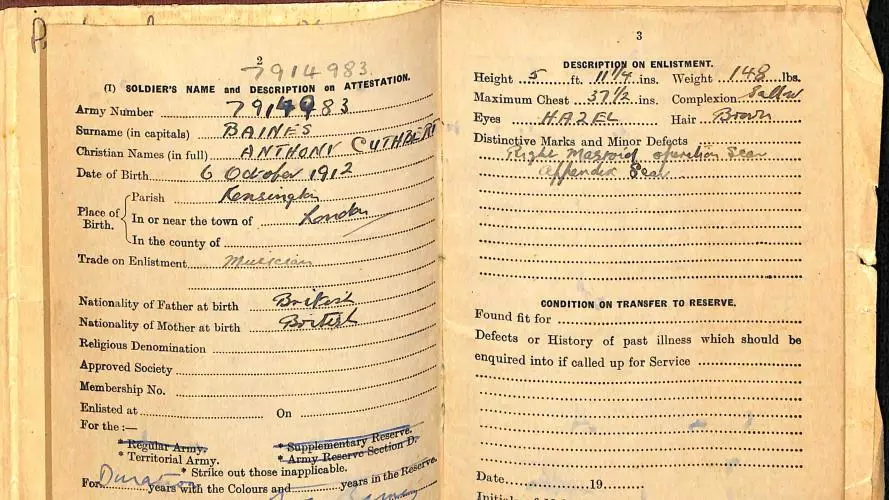 2
7914983.
(I) SOLDIER'S NAME and DESCRIPTION on ATTESTATION.
Army Number 7914983
Surname (in capitals) BAINES
Christian Names (in full) ANTHONY CUTHBERT
Date of Birth 6 October 1912
Place of Birth.
Parish Kensington
In or near the town of London
In the county of
Trade on Enlistment Musician
Nationality of Father at birth British
Nationality of Mother at birth British
Religious Denomination
Approved Society
Membership No.
Enlisted at On
For the :—
* Regular Army. * Supplementary Reserve.
* Territorial Army. * Army Reserve Section D.
* Strike out those inapplicable.
For Duration years with the Colours and years in the Reserve.
3
DESCRIPTION ON ENLISTMENT.
Height 5 ft. 11¼ ins. Weight 148 lbs.
Maximum Chest 37½ ins. Complexion Sallow
Eyes HAZEL Hair Brown
Distinctive Marks and Minor Defects
Right Mastoid operation Scar
appendix Scar
CONDITION ON TRANSFER TO RESERVE.
Found fit for
Defects or History of past illness which should be
enquired into if called up for Service
Date 19